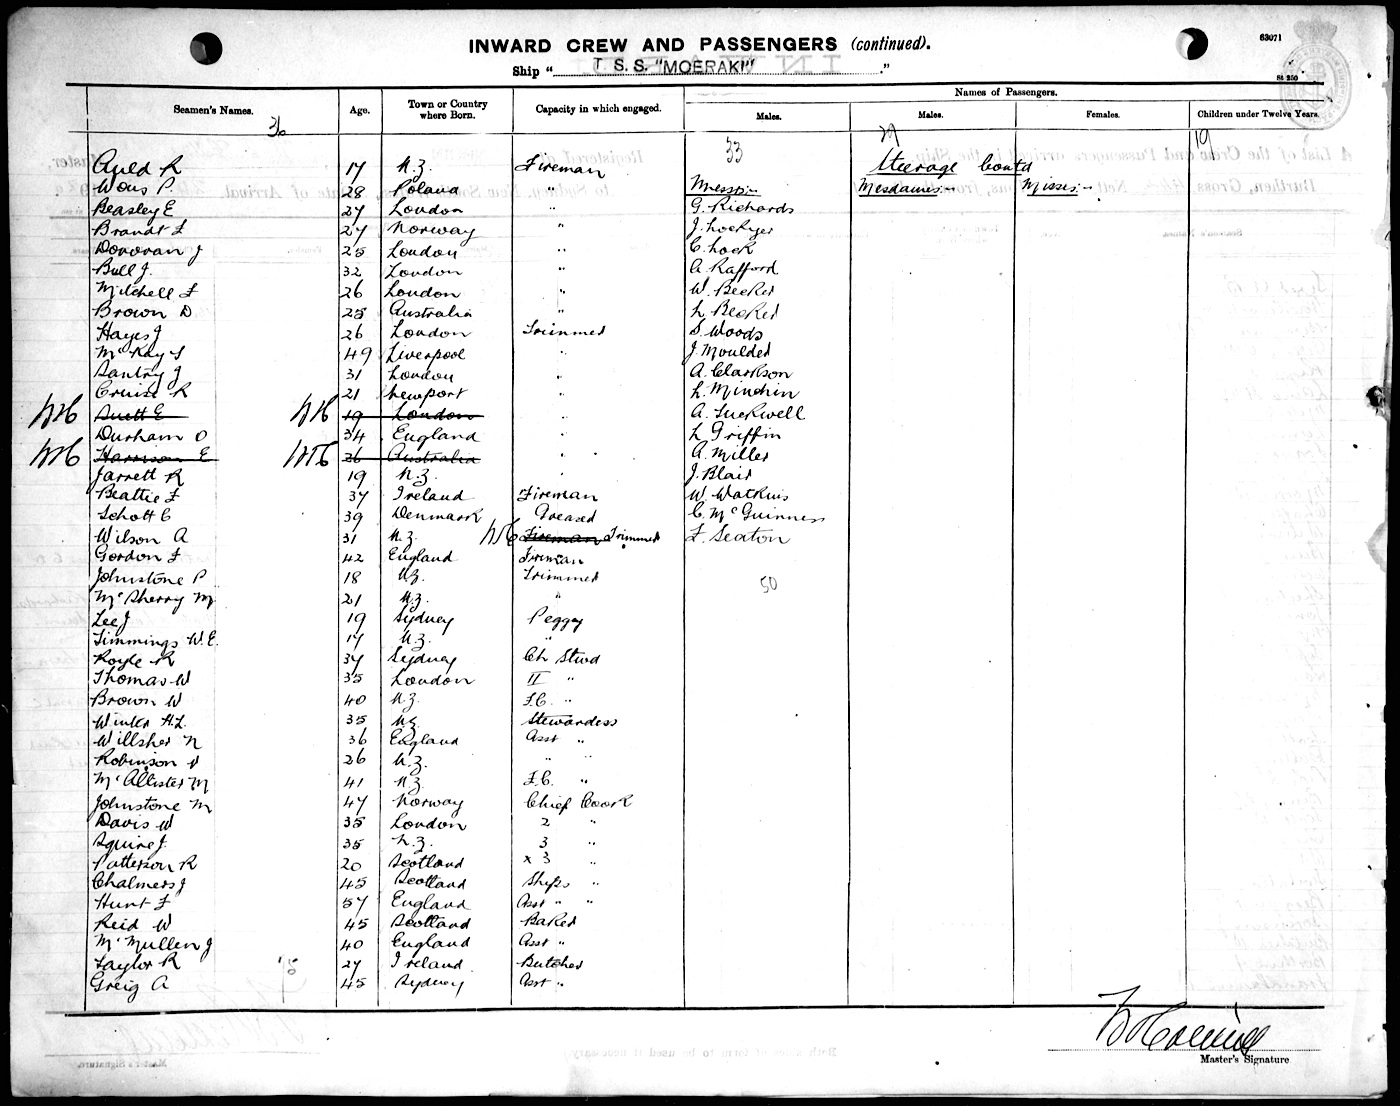 63071
INWARD CREW AND PASSENGERS (continued).
Ship " T. S. S. "MOERAKI" "
St 250
Names of Passengers.
Seamen's Names. Age. Town or Country where Born. Capacity in which engaged. Males. Males. Females. Children under Twelve Years.
36 33 29 19
Auld R 17 N.Z. Fireman Steerage Contd
Wons P. 28 Poland " Messrs:- Mesdames:- Misses:-
Beasley E 27 London " G. Richards
Brandt F 27 Norway " J. Lockyer
Donovan J 25 London " C. Lock
Bull J. 32 London " A Rafford
Mitchell F 26 London " W. Becker
Brown D 25 Australia " L Becker
Hayes J 26 London Trimmer S Woods
McKay S 49 Liverpool " J. Moulder
Santry J 31 London " A. Clarkson
Cruise R 21 Newport " L. Minchin
Suett E 19 London " A. Tuckwell
Durham O 34 England " L Griffin
Harrison E 26 Australia " A. Miller
Jarrett R 19 N.Z. " J. Blair
Beattie F 37 Ireland Fireman W. Watkins
Schott C 39 Denmark Greaser C. McGuinness
Wilson A 31 N.Z. Fireman Trimmer F. Seaton
Gordon F 42 England Fireman
Johnstone P 18 N.Z. Trimmer 50
McSherry M 21 N.Z. "
Lee J 19 Sydney Peggy
Timmings W.E. 17 N.Z. "
Royle R 37 Sydney Ch Stwd
Thomas W 35 London II "
Brown W 40 N.Z. F.C. "
Winter H.L. 35 N.Z. Stewardess
Willsher N 36 England Asst "
Robinson V 26 N.Z. " "
McAllister M 41 N.Z. F.C. "
Johnstone M 47 Norway Chief Cook
Davis W 35 London 2 "
Squire J. 35 N.Z. 3 "
Patterson R 20 Scotland x 3 "
Chalmers J 45 Scotland Ships "
Hunt F 57 England Asst " "
Reid W 45 Scotland Baker
McMullen J 40 England Asst "
Taylor R 27 Ireland Butcher
Greig A 45 Sydney Asst "
Master's Signature